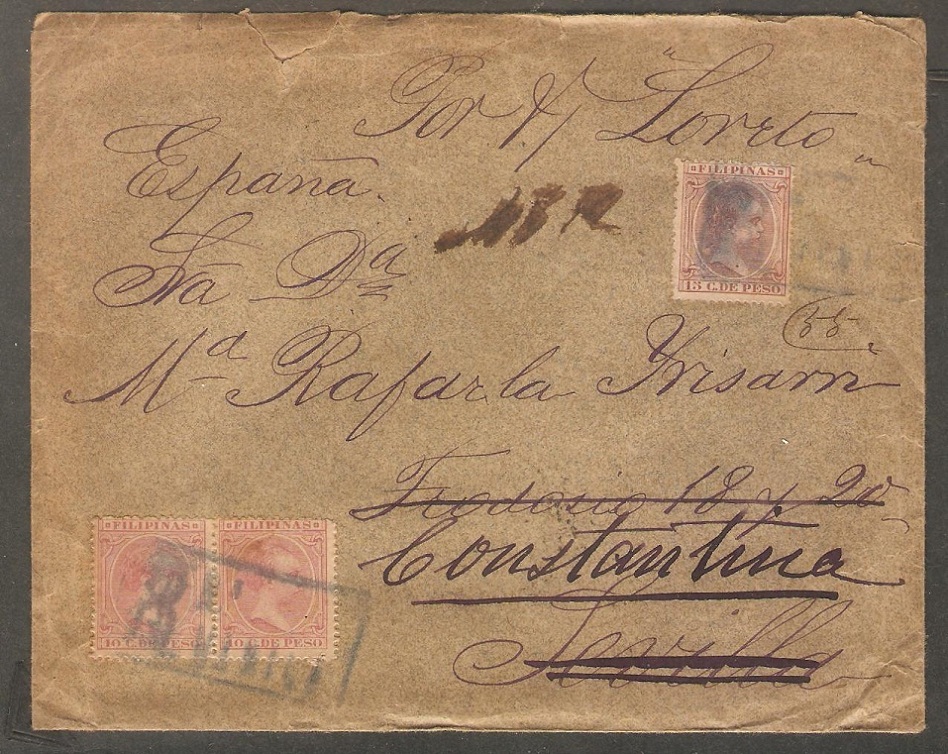 Por V/ "Loreto"
España.
FILIPINAS
15 C. DE PESO
Sra Dª
55
Mª Rafaela Irisarri
Teodosio 18 y 20
Constantina
Sevilla
FILIPINAS FILIPINAS
10 C. DE PESO 10 C. DE PESO